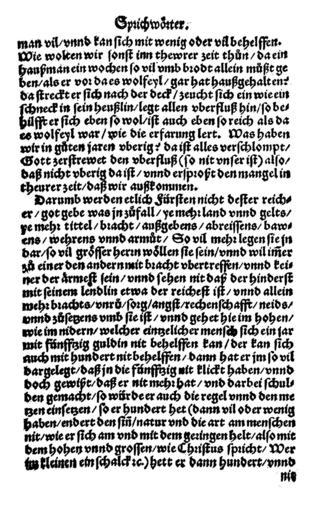 Sprichwörter.
man vil/vnnd kan sich mit wenig oder vil behelffen.
Wie wolten wir sonst inn thewrer zeit thůn/da ein
haußman ein wochen so vil vmb brodt allein můßt ge
ben/als er vor da es wolfeyl/gar hat haußgehalten?
da streckt er sich nach der deck/zeucht sich ein wie ein
schneck in sein heußlin/legt allen vberfluß hin/so be
hilfft er sich eben so wol/ist auch eben so reich als da
es wolfeyl war/wie die erfarung lert. Was haben
wir in gůten jaren vberig? da ist alles verschlompt/
Gott zerstrewet den vberfluß (so nit vnser ist) also/
daß nicht vberig da ist/vnnd ersproßt den mangel in
theurer zeit/daß wir außkommen.
Darumb werden etlich Fürsten nicht dester reich-
er/got gebe was jn zůfall/ye mehr land vnnd gelts/
ye mehr tittel/bracht/außgebens/abreissens/baw-
ens/wehrens vnnd armůt/So vil mehr legen sie jn
dar/so vil grösser herrn wöllen sie sein/vnnd will imer
zů einer den andern mit bracht vbertreffen/vnnd kei-
ner der ärmest sein/vnnd sehen nit daß der hinderst
mit seinem lendlin etwa der reichest ist/vnnd allein
mehr brachts/vnrů/sorg/angst/rechenschafft/neids/
vnnd zůsetzens vmb sie ist/vnnd gehet hie im hohen/
wie im nidern/welcher eintzelicher mensch sich ein jar
mit fünfftzig guldin nit behelffen kan/der kan sich
auch mit hundert nit behelffen/dann hat er jm so vil
dargelegt/daß jn die fünfftzig nit klickt haben/vnnd
doch gewißt/daß er nit mehr hat/vnd darbei schul-
den gemacht/so würde er auch die regel vnnd den me
tzen einsetzen/so er hundert het (dann vil oder wenig
haben/endert den sin/natur vnd die art am menschen
nit/wie er sich am vnd mit dem geringen helt/also mit
dem hohen vnnd grossen/wie Christus spricht/Wer
im kleinen ein schalck ꝛc.) hett er dann hundert/vnnd
nit